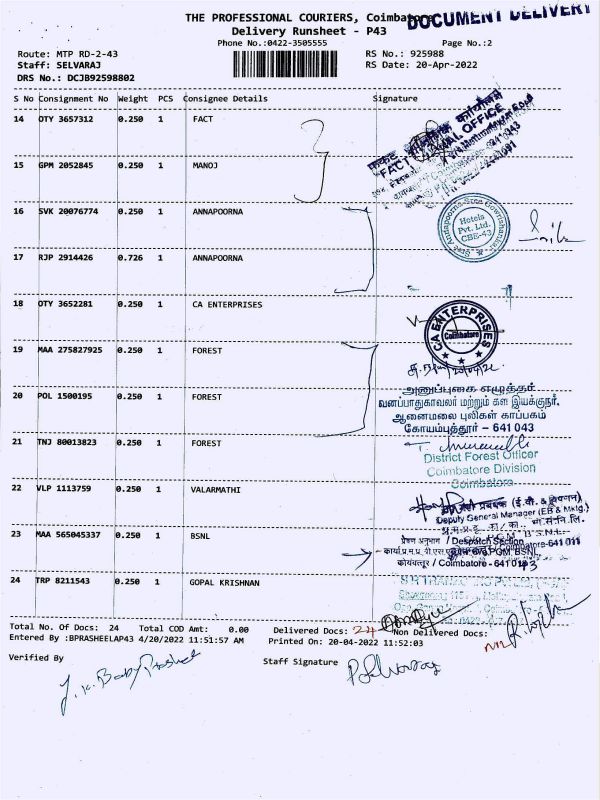 THE PROFESSIONAL COURIERS, Coimbatore
DOCUMENT DELIVERY
Delivery Runsheet - P43
Phone No.:0422-3505555
Page No.:2
Route: MTP RD-2-43
RS No.: 925988
Staff: SELVARAJ
RS Date: 20-Apr-2022
DRS No.: DCJB92598802
S No Consignment No Weight PCS Consignee Details Signature
14 OTY 3657312 0.250 1 FACT
15 GPM 2052845 0.250 1 MANOJ
16 SVK 20076774 0.250 1 ANNAPOORNA
Hotels
Pvt. Ltd.
CBE-43
17 RJP 2914426 0.726 1 ANNAPOORNA
18 OTY 3652281 0.250 1 CA ENTERPRISES
CA ENTERPRISES
Coimbatore
19 MAA 275827925 0.250 1 FOREST
20 POL 1500195 0.250 1 FOREST
அனுப்புகை எழுத்தர்
வனப்பாதுகாவலர் மற்றும் கள இயக்குநர்.
ஆனைமலை புலிகள் காப்பகம்
கோயம்புத்தூர் - 641 043
21 TNJ 80013823 0.250 1 FOREST
District Forest Officer
Coimbatore Division
Coimbatore
22 VLP 1113759 0.250 1 VALARMATHI
Deputy General Manager (EB & Mktg.)
23 MAA 565045337 0.250 1 BSNL
प्रेषण अनुभाग / Despatch Section
कोयंबत्तूर / Coimbatore - 641 043
24 TRP 8211543 0.250 1 GOPAL KRISHNAN
Total No. Of Docs: 24 Total COD Amt: 0.00 Delivered Docs: 24 Non Delivered Docs:
Entered By :BPRASHEELAP43 4/20/2022 11:51:57 AM Printed On: 20-04-2022 11:52:03
Verified By Staff Signature